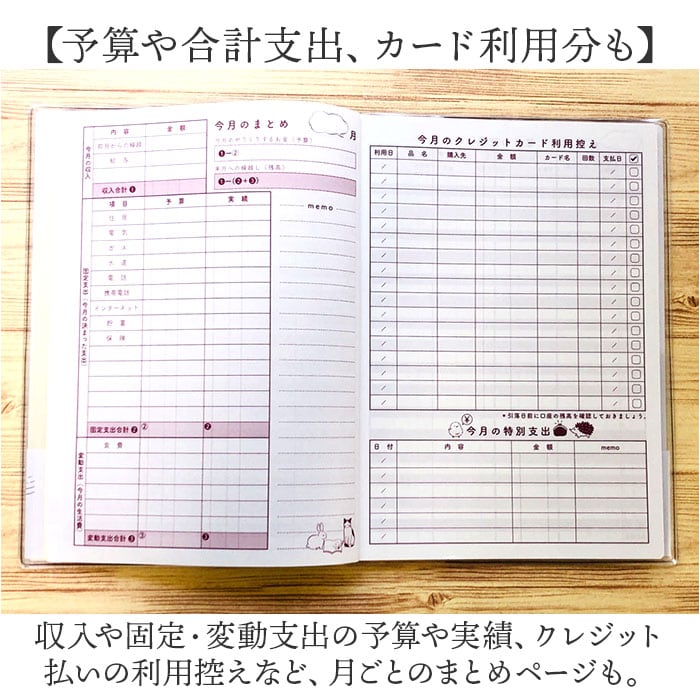 【予算や合計支出、カード利用分も】
今月のまとめ
内容 金額
今月の収入
前月からの繰越
給与
収入合計❶
今月のやりくりするお金(予算)
❶ー②
来月への繰越し(残高)
❶ー(❷+❸)
memo
項目 予算 実績
固定支出(今月の決まった支出)
住居
電気
ガス
水道
電話
携帯電話
インターネット
貯蓄
保険
固定支出合計❷ ② ❷
変動支出(今月の生活費)
食費
変動支出合計❸ ③ ❸
今月のクレジットカード利用控え
利用日 品名 購入先 金額 カード名 回数 支払日
*引落日前に口座の残高を確認しておきましょう。
¥
今月の特別支出
日付 内容 金額 memo
収入や固定・変動支出の予算や実績、クレジット
払いの利用控えなど、月ごとのまとめページも。